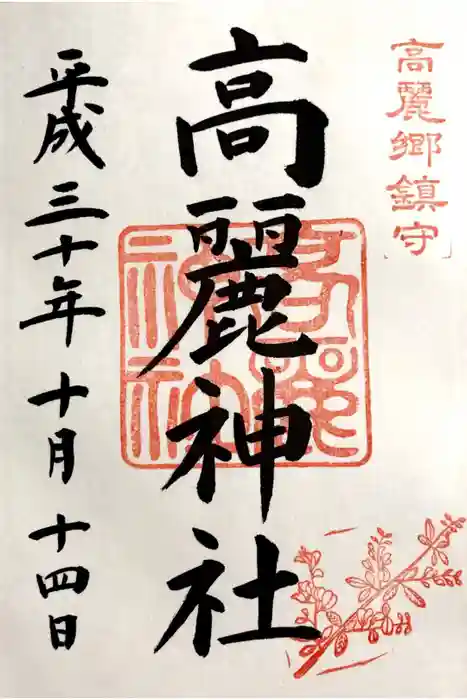 高麗郷鎮守
高麗神社
平成三十年十月十四日